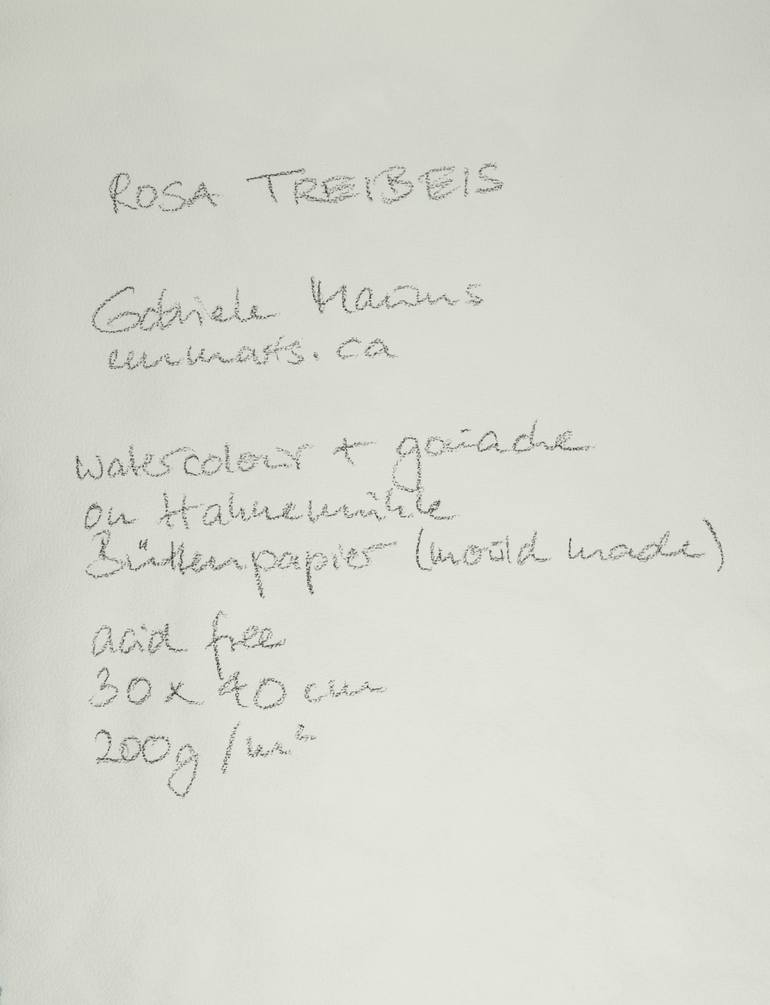 ROSA TREIBEIS
Gabriele
watercolour + gouache
on Hahnemühle
Büttenpapier (mould made)
acid free
30 x 40 cm
200g/m²